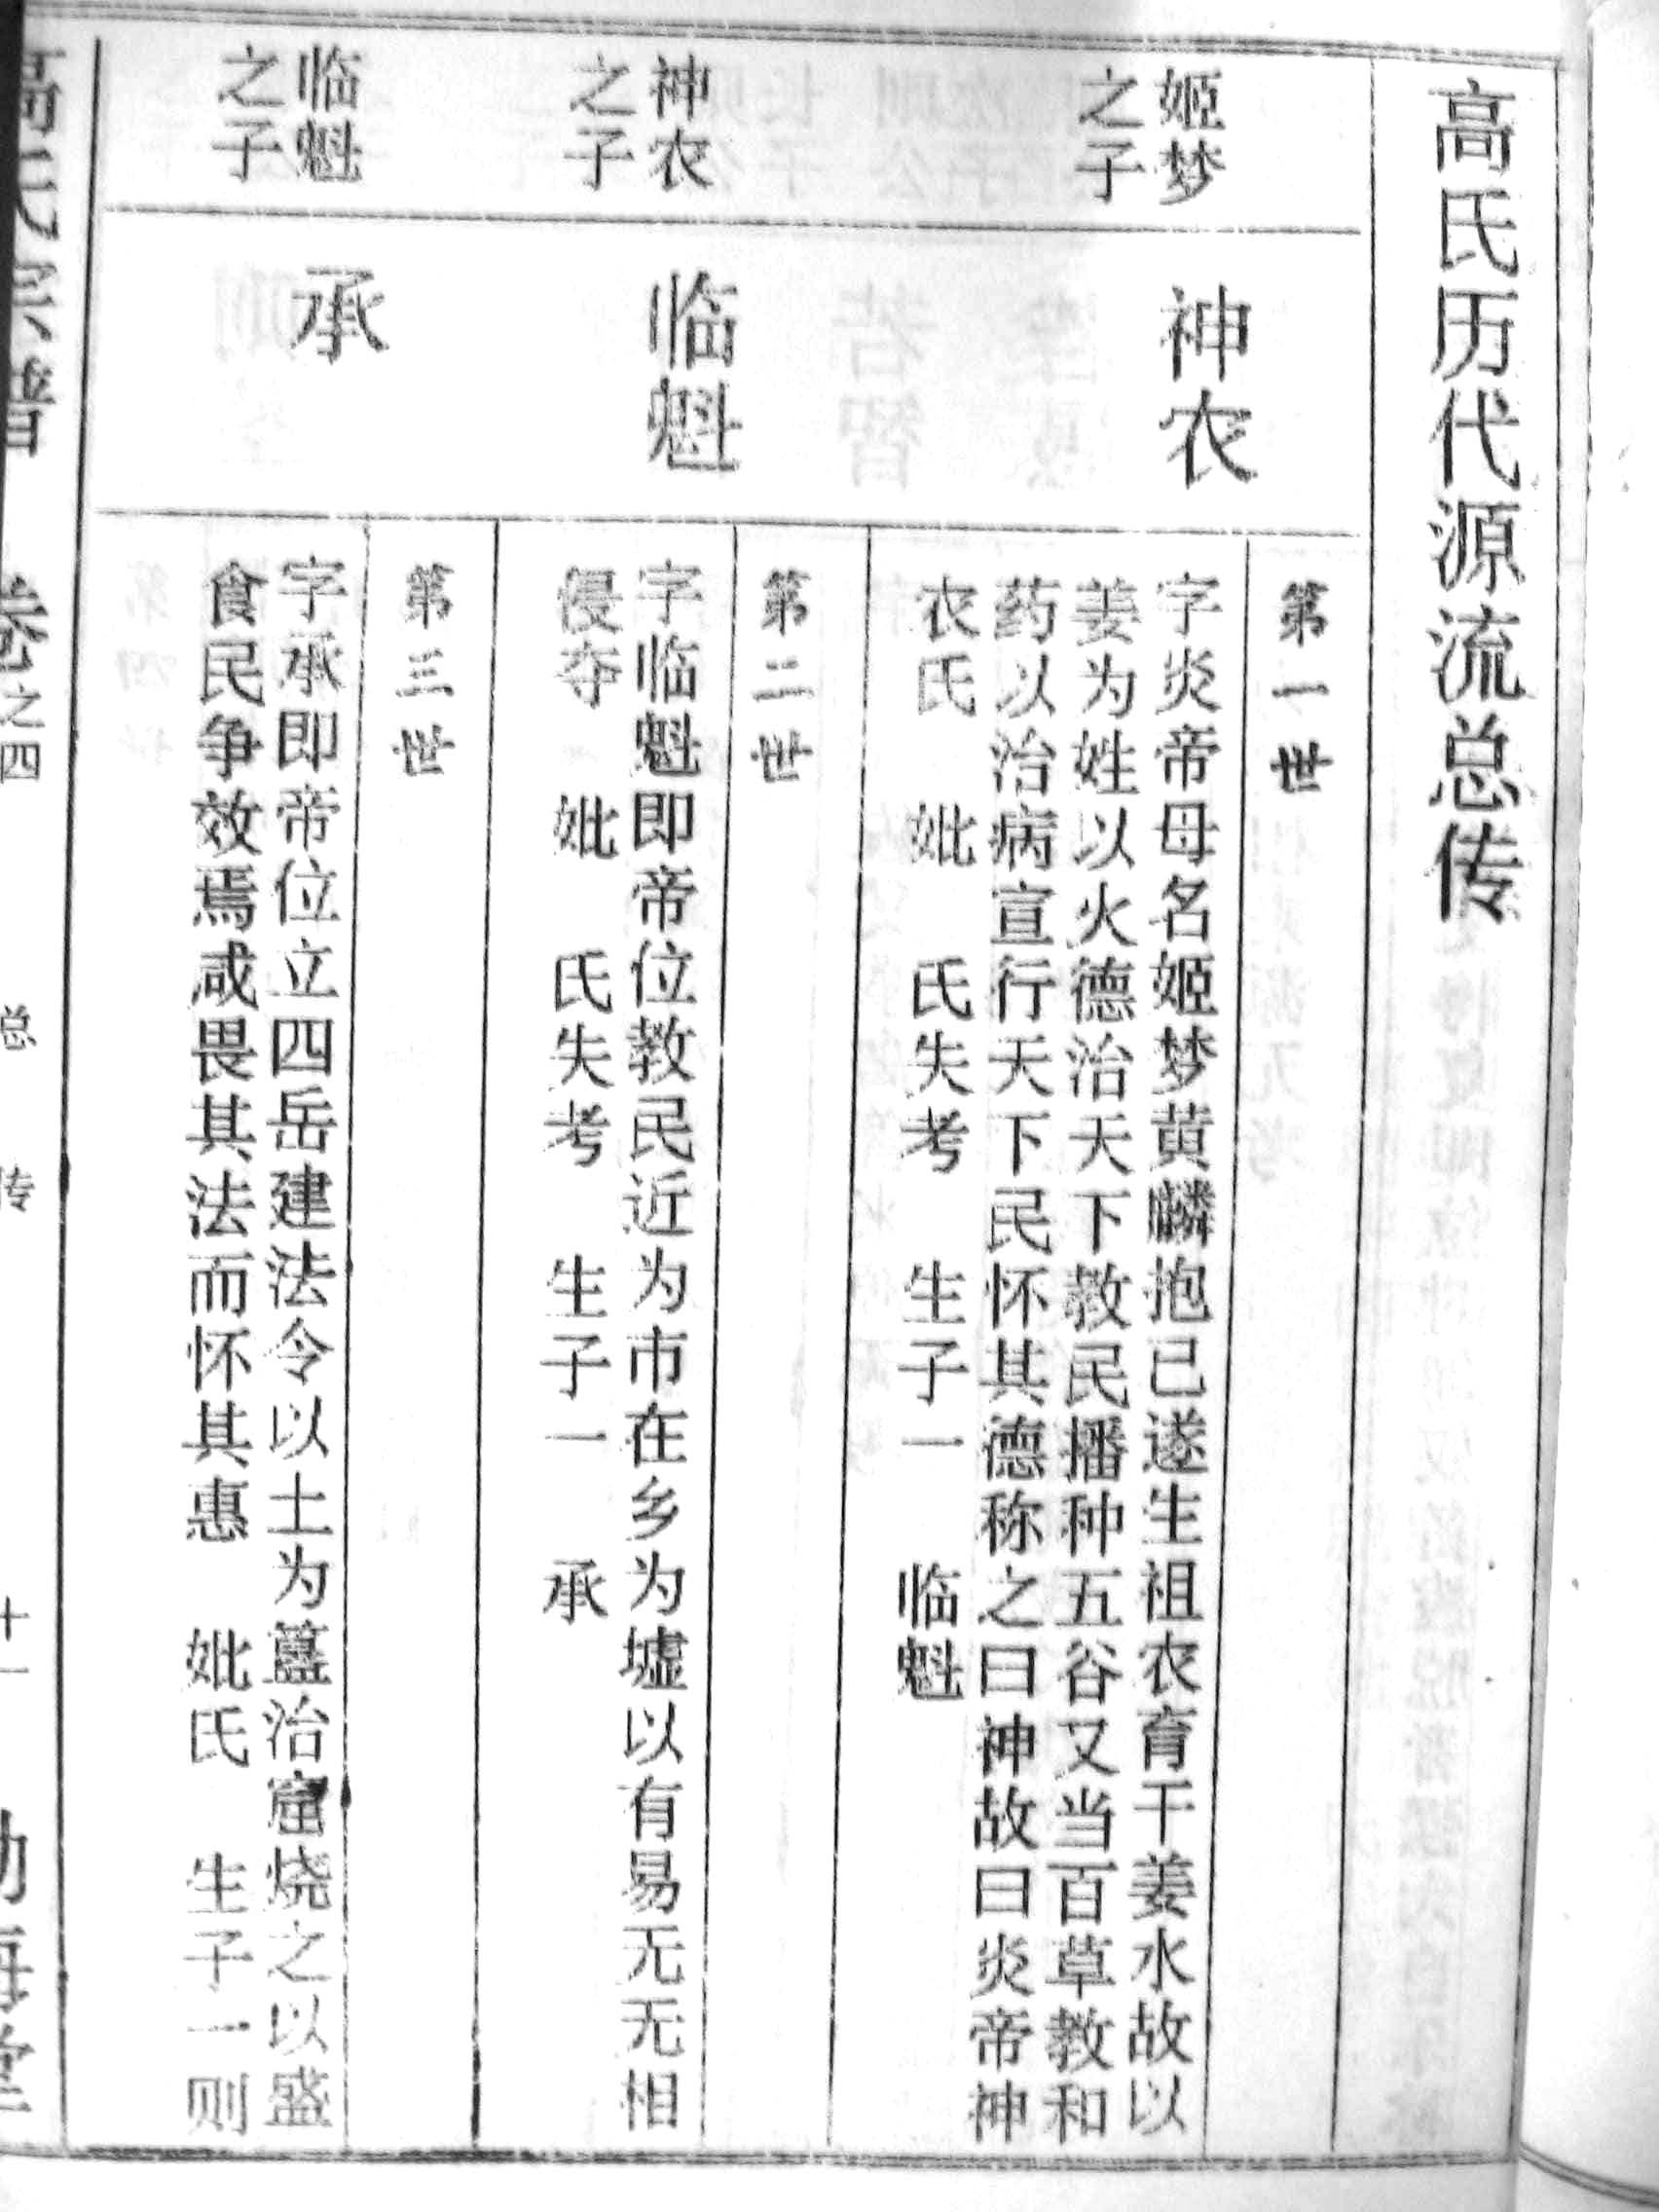 高氏历代源流总传
姬梦
之子
神农
第一世
字炎帝母名姬梦黄麟抱已遂生祖农育干姜水故以
姜为姓以火德治天下教民播种五谷又当百草教和
药以治病宣行天下民怀其德称之曰神故曰炎帝神
农氏 妣 氏失考 生子一 临魁
神农
之子
临魁
第二世
字临魁即帝位教民近为市在乡为墟以有易无无相
侵夺 妣 氏失考 生子一 承
临魁
之子
承
第三世
字承即帝位立四岳建法令以土为簋治窟烧之以盛
食民争效焉咸畏其法而怀其惠 妣氏 生子一则
高氏宗谱 卷之四 总传 十一 海堂